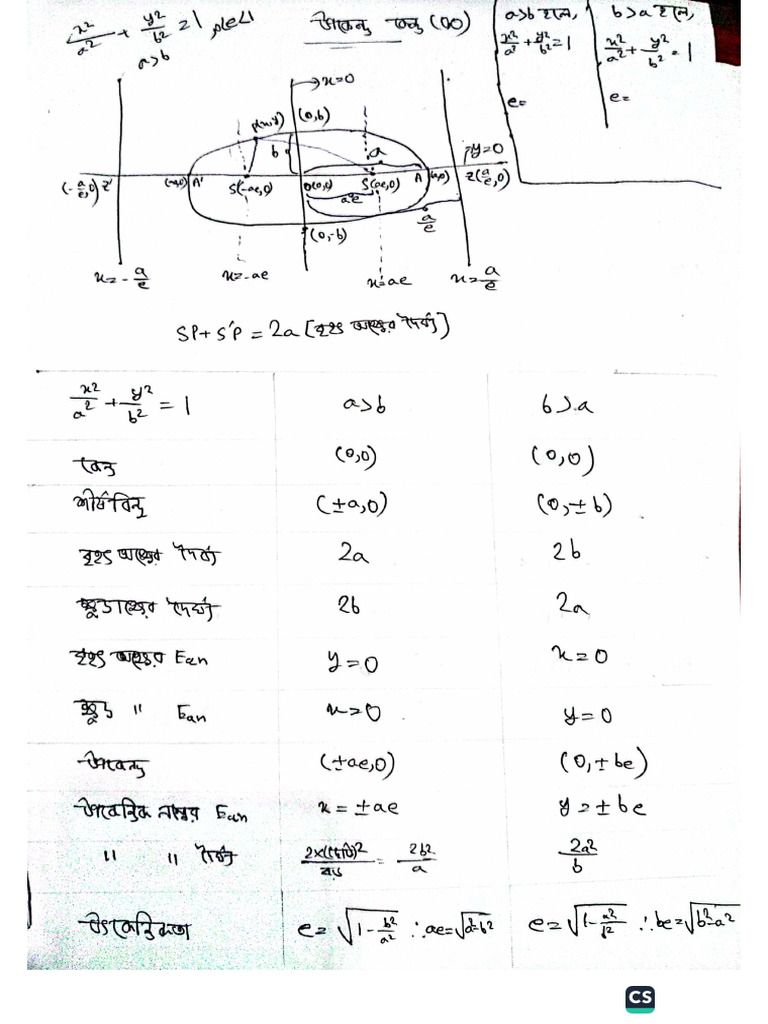 x²/a² + y²/b² = 1
a>b
উপকেন্দ্র
a>b হলে,
x²/a² + y²/b² = 1
e=
b>a হলে,
x²/a² + y²/b² = 1
e=
x=0
P(x,y)
(0,b)
b
a
y=0
(-a/e,0) Z'
(-a,0) A'
S'(-ae,0)
O(0,0)
S(ae,0)
A (a,0)
Z(a/e,0)
ae
a/e
(0,-b)
x=-a/e
x=-ae
x=ae
x=a/e
SP+S'P = 2a [বৃহৎ অক্ষের দৈর্ঘ্য]
x²/a² + y²/b² = 1 a>b b>a
কেন্দ্র (0,0) (0,0)
শীর্ষবিন্দু (±a,0) (0,±b)
বৃহৎ অক্ষের দৈর্ঘ্য 2a 2b
ক্ষুদ্রাক্ষের দৈর্ঘ্য 2b 2a
বৃহৎ অক্ষের Eqn y=0 x=0
ক্ষুদ্র " Eqn x=0 y=0
উপকেন্দ্র (±ae,0) (0,±be)
উপকেন্দ্রিক লম্বের Eqn x=±ae y=±be
" " দৈর্ঘ্য 2×(ছোট)²/বড় = 2b²/a 2a²/b
উৎকেন্দ্রিকতা e=√(1-b²/a²) ∴ae=√(a²-b²) e=√(1-a²/b²) ∴be=√(b²-a²)
CS